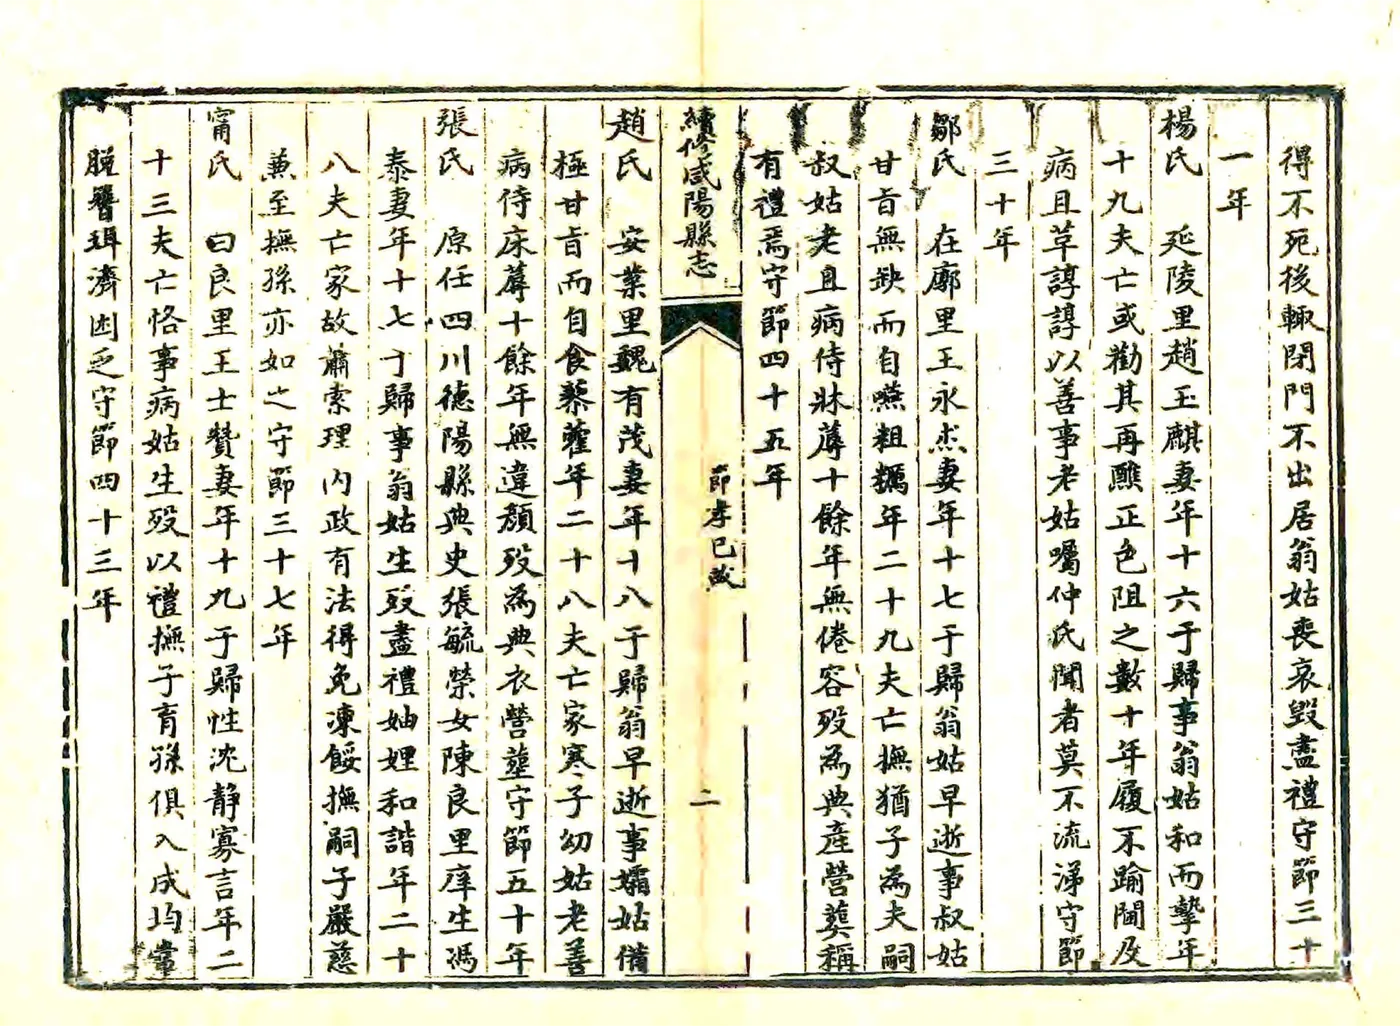 得不死後輙閉門不出居翁姑喪哀毀盡禮守節三十
一年
楊氏　延陵里趙玉麒妻年十六于歸事翁姑和而摯年
十九夫亡或勸其再醮正色阻之數十年履不踰閫及
病且革諄諄以善事老姑囑仲氏聞者莫不流涕守節
三十年
鄒氏　在廓里王永杰妻年十七于歸翁姑早逝事叔姑
甘旨無缺而自嚥粗糲年二十九夫亡撫猶子為夫嗣
叔姑老且病侍牀蓐十餘年無倦容歿為典產營葬稱
有禮焉守節四十五年
續修咸陽縣志
節孝已歿
二
趙氏　安業里魏有茂妻年十八于歸翁早逝事孀姑備
極甘旨而自食藜藿年二十八夫亡家寒子幼姑老善
病侍床蓐十餘年無違顏歿為典衣營塟守節五十年
張氏　原任四川德陽縣典史張毓榮女陳良里庠生馮
泰妻年十七于歸事翁姑生歿盡禮妯娌和諧年二十
八夫亡家故蕭索理內政有法得免凍餒撫嗣子嚴慈
兼至撫孫亦如之守節三十七年
甯氏　曰良里王士贊妻年十九于歸性沈静寡言年二
十三夫亡恪事病姑生歿以禮撫子育孫俱入成均嘗
脫簪珥濟困乏守節四十三年